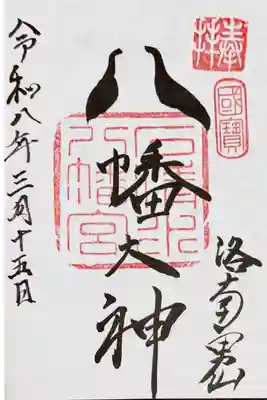 奉拝
國寶
八幡大神
石清水八幡宮
洛南男山
令和八年三月十五日